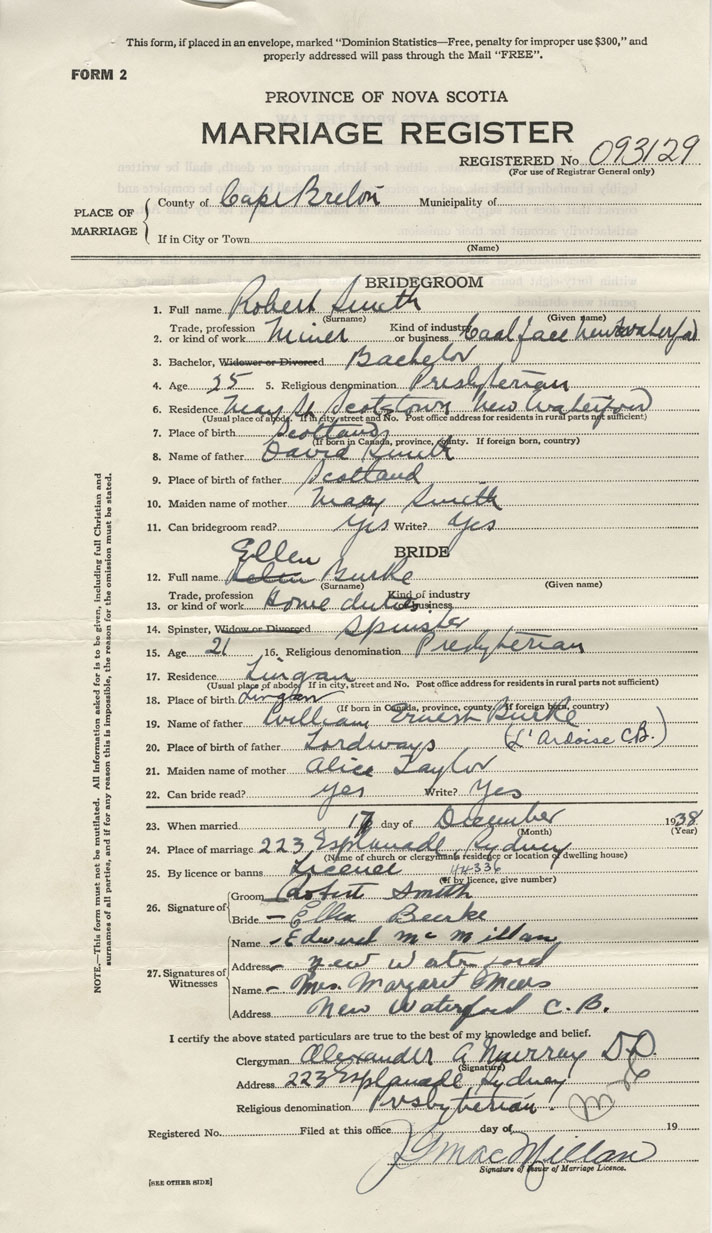 This form, if placed in an envelope, marked "Dominion Statistics—Free, penalty for improper use $300," and
properly addressed will pass through the Mail "FREE".
FORM 2
PROVINCE OF NOVA SCOTIA
MARRIAGE REGISTER
REGISTERED No 093129
(For use of Registrar General only)
PLACE OF MARRIAGE
County of Cape Breton Municipality of
If in City or Town
(Name)
BRIDEGROOM
1. Full name Robert Smith
(Surname) (Given name)
2. Trade, profession or kind of work Miner Kind of industry or business Coal face New Waterfo
3. Bachelor, Widower or Divorced Bachelor
4. Age 25 5. Religious denomination Presbyterian
6. Residence May St Scotstown New Waterford
(Usual place of abode. If in city, street and No. Post office address for residents in rural parts not sufficient)
7. Place of birth Scotland
(If born in Canada, province, county. If foreign born, country)
8. Name of father David Smith
9. Place of birth of father Scotland
10. Maiden name of mother Mary Smith
11. Can bridegroom read? Yes Write? Yes
BRIDE
Ellen
12. Full name Burke
(Surname) (Given name)
13. Trade, profession or kind of work Home duties Kind of industry or business
14. Spinster, Widow or Divorced Spinster
15. Age 21 16. Religious denomination Presbyterian
17. Residence Lingan
(Usual place of abode. If in city, street and No. Post office address for residents in rural parts not sufficient)
18. Place of birth Lingan
(If born in Canada, province, county. If foreign born, country)
19. Name of father William Ernest Burke
20. Place of birth of father Lordways (L'Ardoise C.B.)
21. Maiden name of mother Alice Taylor
22. Can bride read? Yes Write? Yes
23. When married 17 day of December 1938
(Month) (Year)
24. Place of marriage 223 Esplanade, Sydney
(Name of church or clergyman's residence or location of dwelling house)
25. By licence or banns Licence 44336
(If by licence, give number)
26. Signature of
Groom Robert Smith
Bride - Ellen Burke
27. Signatures of Witnesses
Name - Edward McMillan
Address - New Waterford
Name - Mrs. Margaret Meers
Address New Waterford C.B.
I certify the above stated particulars are true to the best of my knowledge and belief.
Clergyman Alexander A Murray D.D.
(Signature)
Address 223 Esplanade, Sydney
Religious denomination Presbyterian.
Registered No. Filed at this office day of 19
J G MacMillan
Signature of Issuer of Marriage Licence.
[SEE OTHER SIDE]
NOTE.—This form must not be mutilated. All information asked for is to be given, including full Christian and
surnames of all parties, and if for any reason this is impossible, the reason for the omission must be stated.